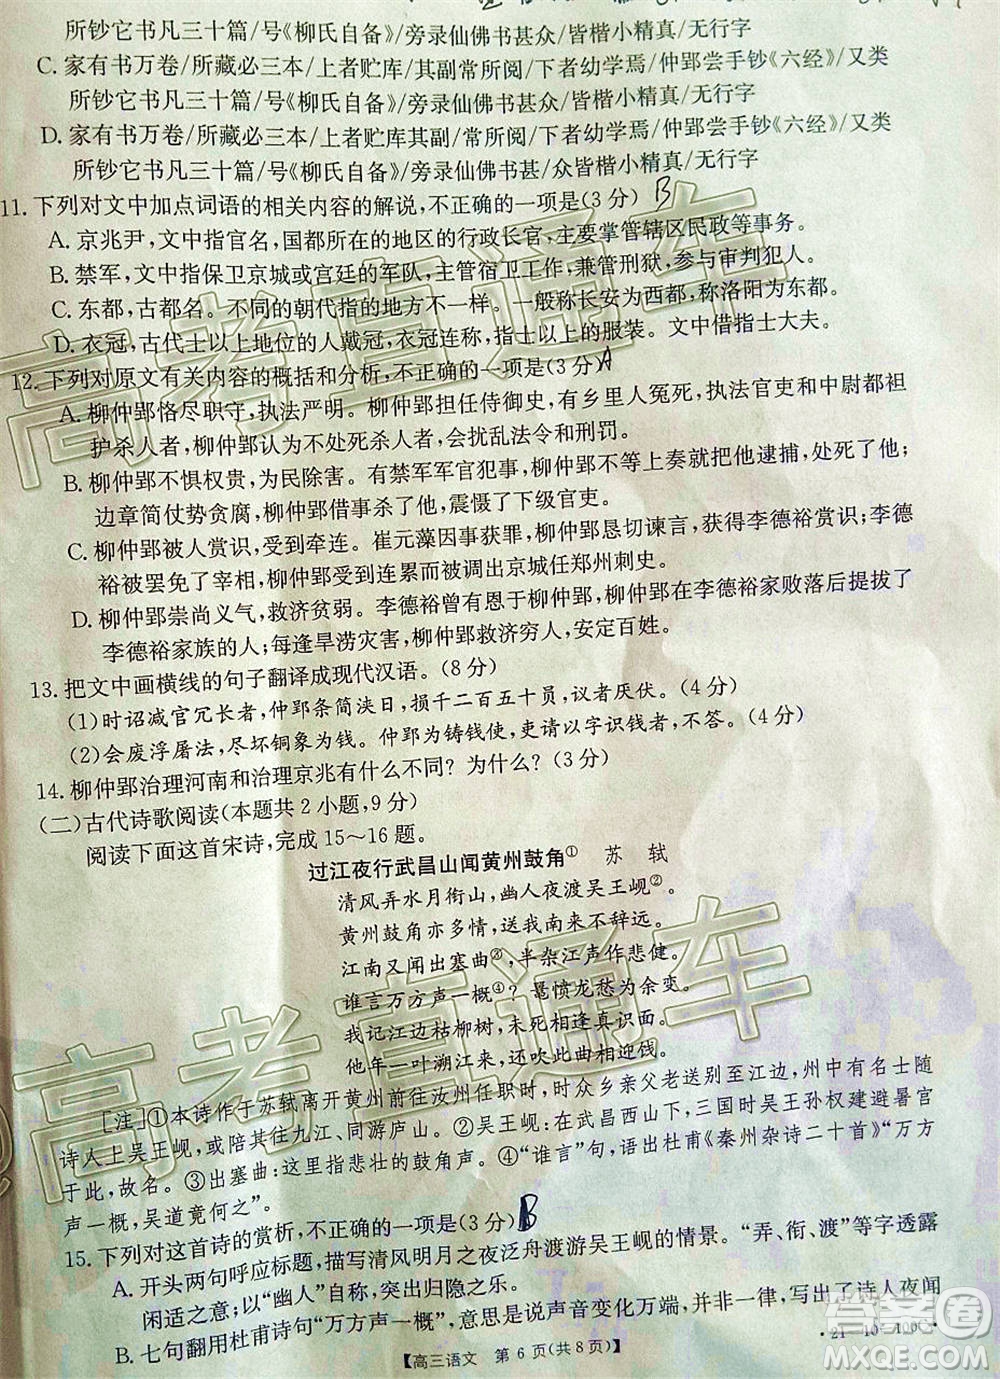 所钞它书凡三十篇/号《柳氏自备》/旁录仙佛书甚众/皆楷小精真/无行字
C. 家有书万卷/所藏必三本/上者贮库/其副常所阅/下者幼学焉/仲郢尝手钞《六经》/又类
所钞它书凡三十篇/号《柳氏自备》/旁录仙佛书甚众/皆楷小精真/无行字
D. 家有书万卷/所藏必三本/上者贮库其副/常所阅/下者幼学焉/仲郢尝手钞《六经》/又类
所钞它书凡三十篇/号《柳氏自备》/旁录仙佛书甚/众皆楷小精真/无行字
11. 下列对文中加点词语的相关内容的解说,不正确的一项是(3 分) B
A. 京兆尹,文中指官名,国都所在的地区的行政长官,主要掌管辖区民政等事务。
B. 禁军,文中指保卫京城或宫廷的军队,主管宿卫工作,兼管刑狱,参与审判犯人。
C. 东都,古都名。不同的朝代指的地方不一样。一般称长安为西都,称洛阳为东都。
D. 衣冠,古代士以上地位的人戴冠,衣冠连称,指士以上的服装。文中借指士大夫。
12. 下列对原文有关内容的概括和分析,不正确的一项是(3 分) A
A. 柳仲郢恪尽职守,执法严明。柳仲郢担任侍御史,有乡里人冤死,执法官吏和中尉都袒
护杀人者,柳仲郢认为不处死杀人者,就会扰乱法令和刑罚。
B. 柳仲郢不惧权贵,为民除害。有禁军军官犯事,柳仲郢不等上奏就把他逮捕,处死了他;
边章简仗势贪腐,柳仲郢借事杀了他,震慑了下级官吏。
C. 柳仲郢被人赏识,受到牵连。崔元藻因事获罪,柳仲郢恳切谏言,获得李德裕赏识,李德
裕被罢免了宰相,柳仲郢受到连累而调出京城任郑州刺史。
D. 柳仲郢崇尚义气,救济贫弱。李德裕曾有恩于柳仲郢,柳仲郢在李德裕家败落后提拔了
李德裕家族的人;每逢旱涝灾害,柳仲郢救济穷人,安定百姓。
13. 把文中画横线的句子翻译成现代汉语。(8 分)
(1)时诏减官冗长者,仲郢条简浃日,损千二百五十员,议者厌伏。(4 分)
(2)会废浮屠法,尽坏铜象为钱。仲郢为铸钱使,吏请以字识钱者,不答。(4 分)
14. 柳仲郢治理河南和治理京兆有什么不同? 为什么? (3 分)
(二)古代诗歌阅读(本题共 2 小题,9 分)
阅读下面这首宋诗,完成 15～16 题。
过江夜行武昌山闻黄州鼓角① 苏 轼
清风弄水月衔山,幽人夜渡吴王岘②。
黄州鼓角亦多情,送我南来不辞远。
江南又闻出塞曲③,半杂江声作悲健。
谁言万方声一概④? 鼍愤龙愁为余变。
我记江边枯柳树,未死相逢真识面。
他年一叶溯江来,还吹此曲相迎饯。
[注]①本诗作于苏轼离开黄州任职时,时众乡亲父老送别至江边,州中有名士随
诗人上吴王岘,或陪其去九江、同游庐山。②吴王岘:在武昌西山,三国时吴王孙权避暑宫
于此,故名。③出塞曲:这里指悲壮的鼓角声。④“谁言”句,语出杜甫《秦州杂诗二十首》“万方
声一概,吴道竟何之”。
15. 下列对这首诗的赏析,不正确的一项是(3 分) B
A. 开头两句呼应标题,描写清风明月之夜泛舟渡游吴王岘的情景。“弄、衔、渡”等字透露
闲适之意;以“幽人”自称,突出归隐之乐。
B. 七句翻用杜甫诗句“万方声一概”,意思是说声音变化万端,并非一律,写出了诗人夜闻
【高三语文 第 6 页(共 8 页)】
高考直通车
高考直通车
答案圈
MXQE.COM